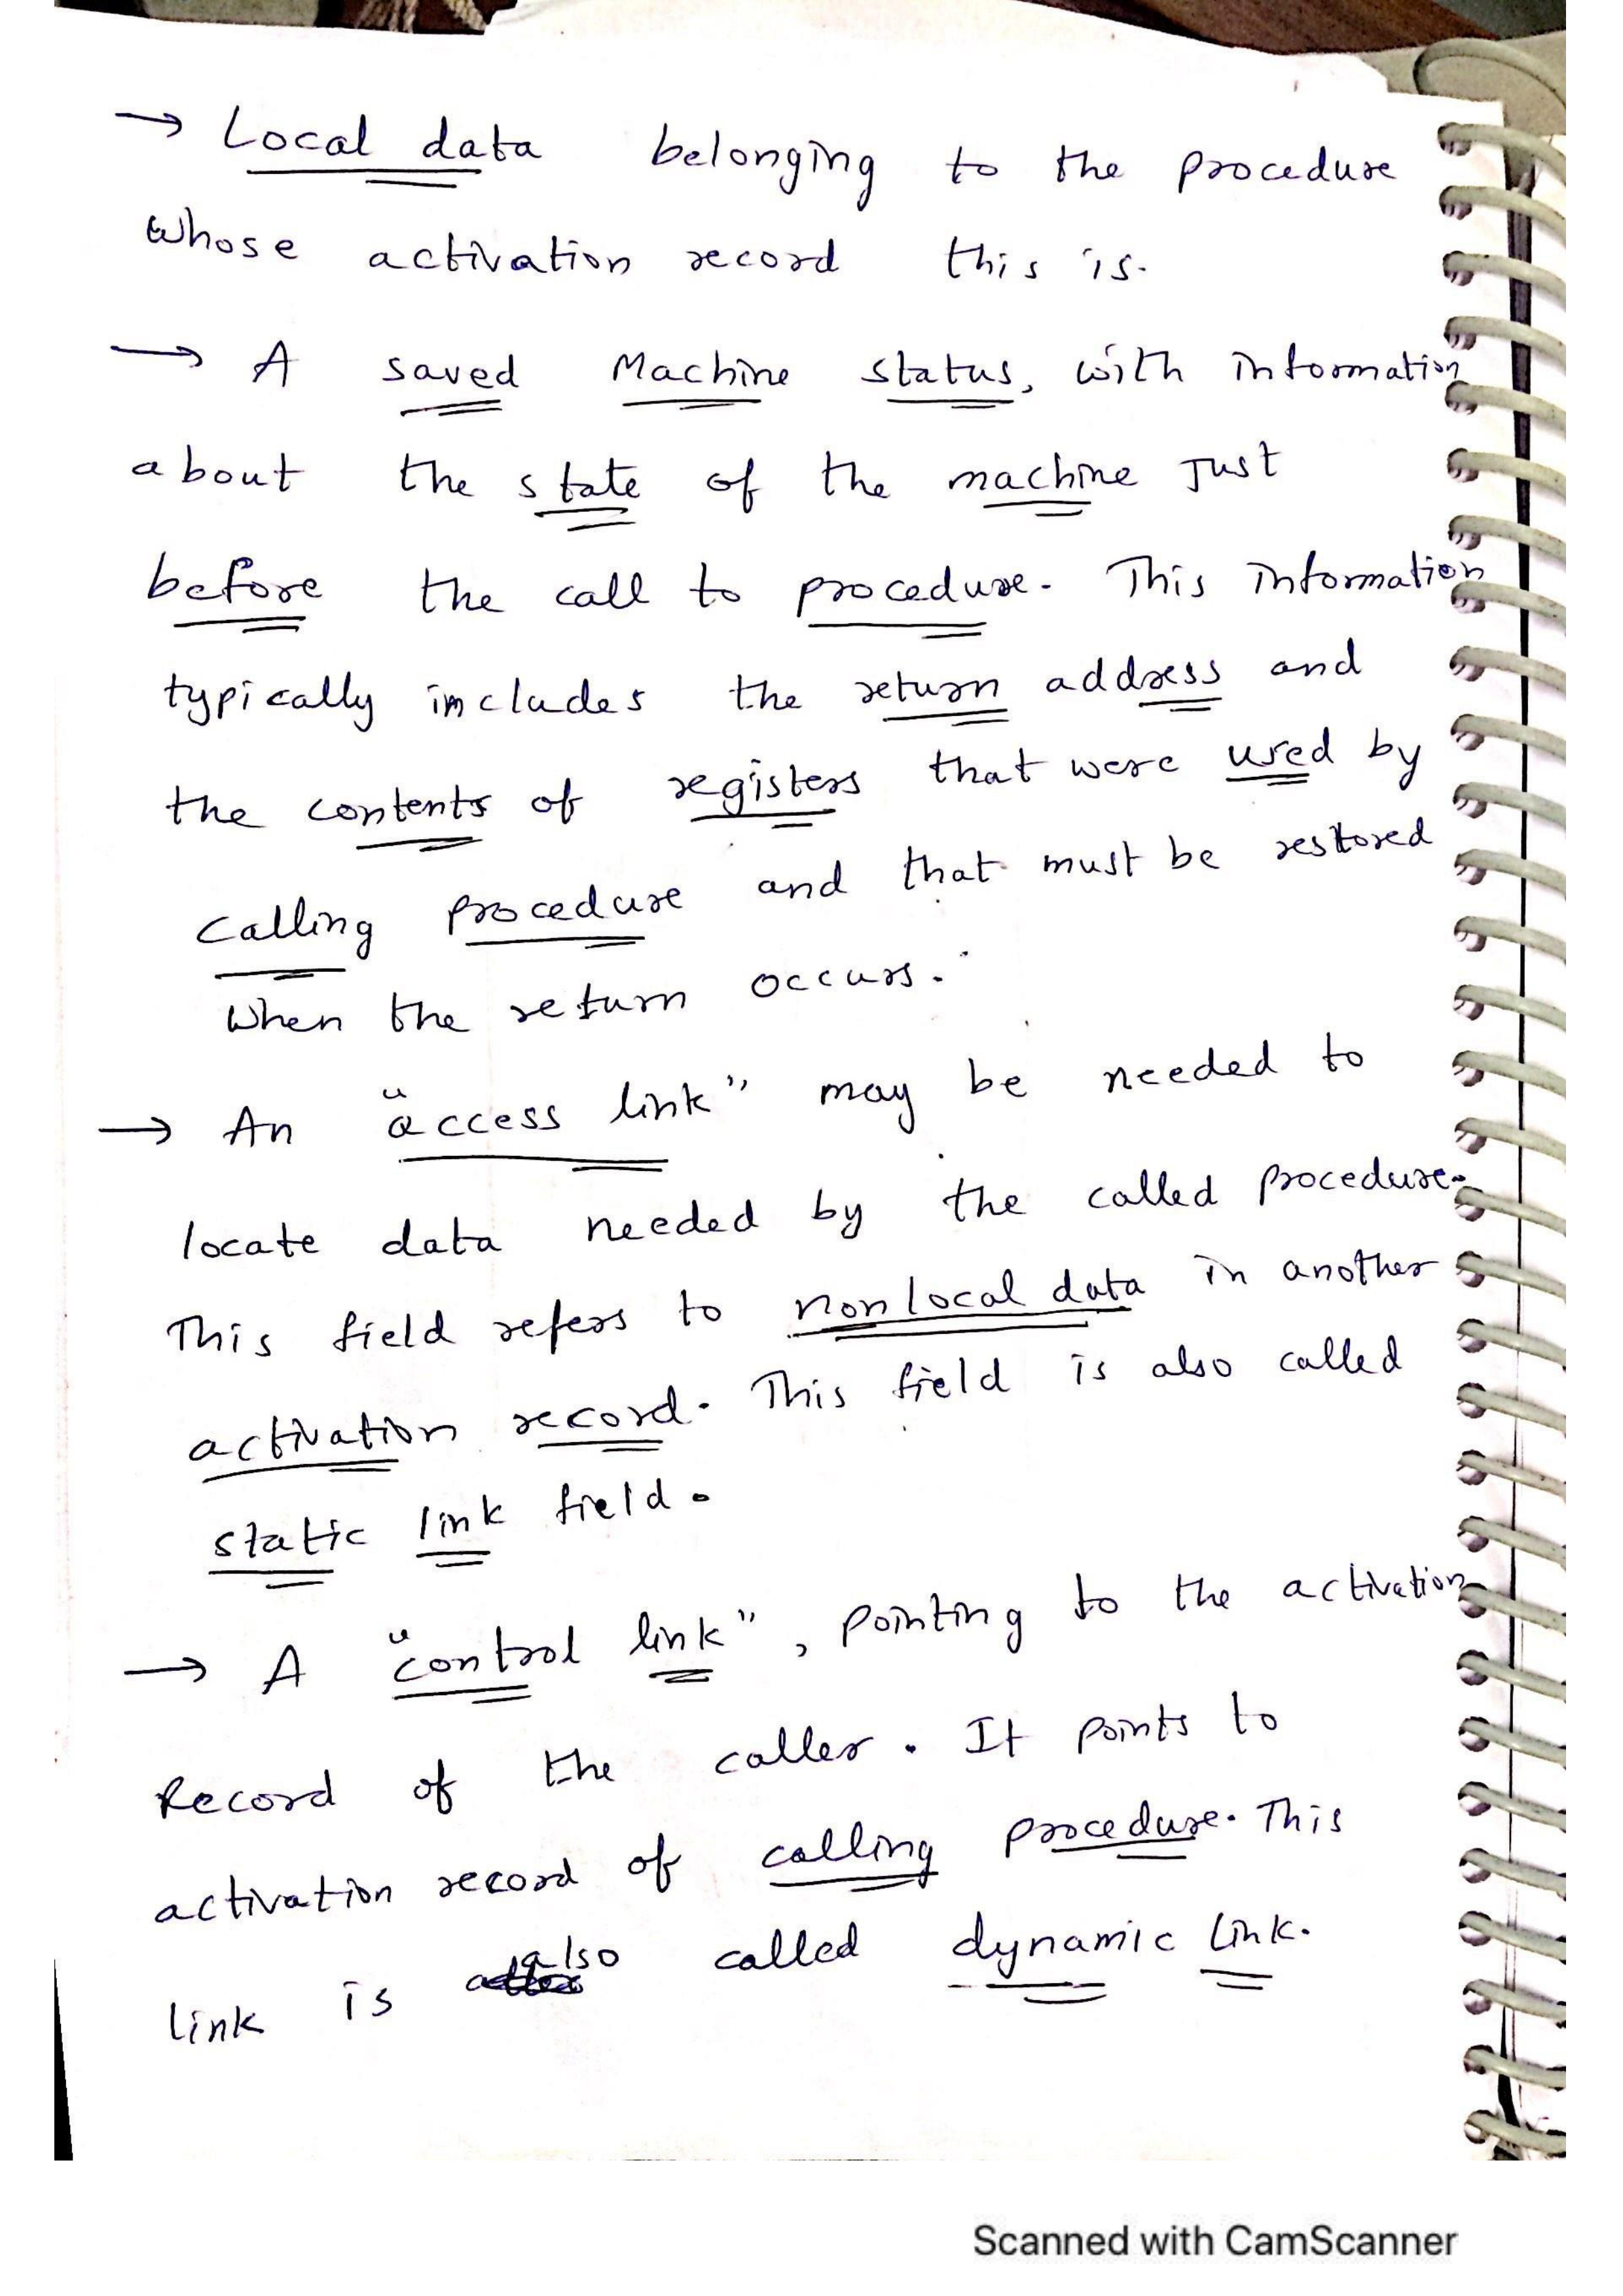 → Local data belonging to the procedure
whose activation record this is.
→ A saved Machine status, with information
about the state of the machine Just
before the call to procedure. This information
typically includes the return address and
the contents of registers that were used by
calling procedure and that must be restored
when the return occurs.
→ An "access link" may be needed to
locate data needed by the called procedure.
This field refers to nonlocal data in another
activation record. This field is also called
static link field.
→ A "control link", pointing to the activation
Record of the caller. It points to
activation record of calling procedure. This
link is also called dynamic link.
Scanned with CamScanner